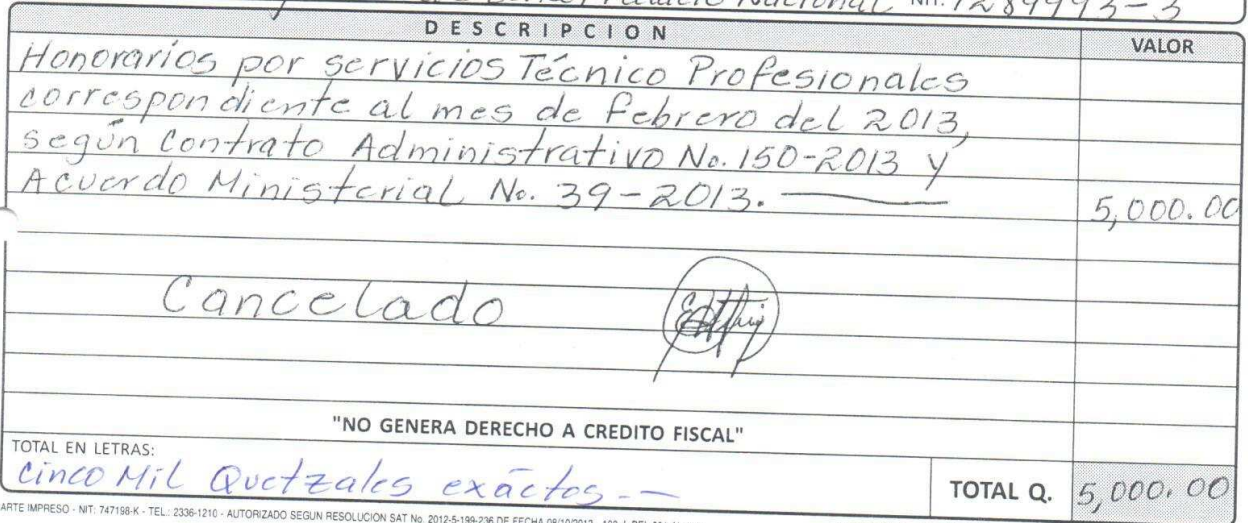 Palacio Nacional NIT: 1289993-3
DESCRIPCION VALOR
Honorarios por servicios Técnico Profesionales
correspondiente al mes de febrero del 2013,
según Contrato Administrativo No. 150-2013 y
Acuerdo Ministerial No. 39-2013. 5,000.00
Cancelado
"NO GENERA DERECHO A CREDITO FISCAL"
TOTAL EN LETRAS:
Cinco Mil Quetzales exáctos.-
TOTAL Q. 5,000.00
ARTE IMPRESO - NIT: 747198-K - TEL.: 2336-1210 - AUTORIZADO SEGUN RESOLUCION SAT No. 2012-5-199-236 DE FECHA 08/10/2012